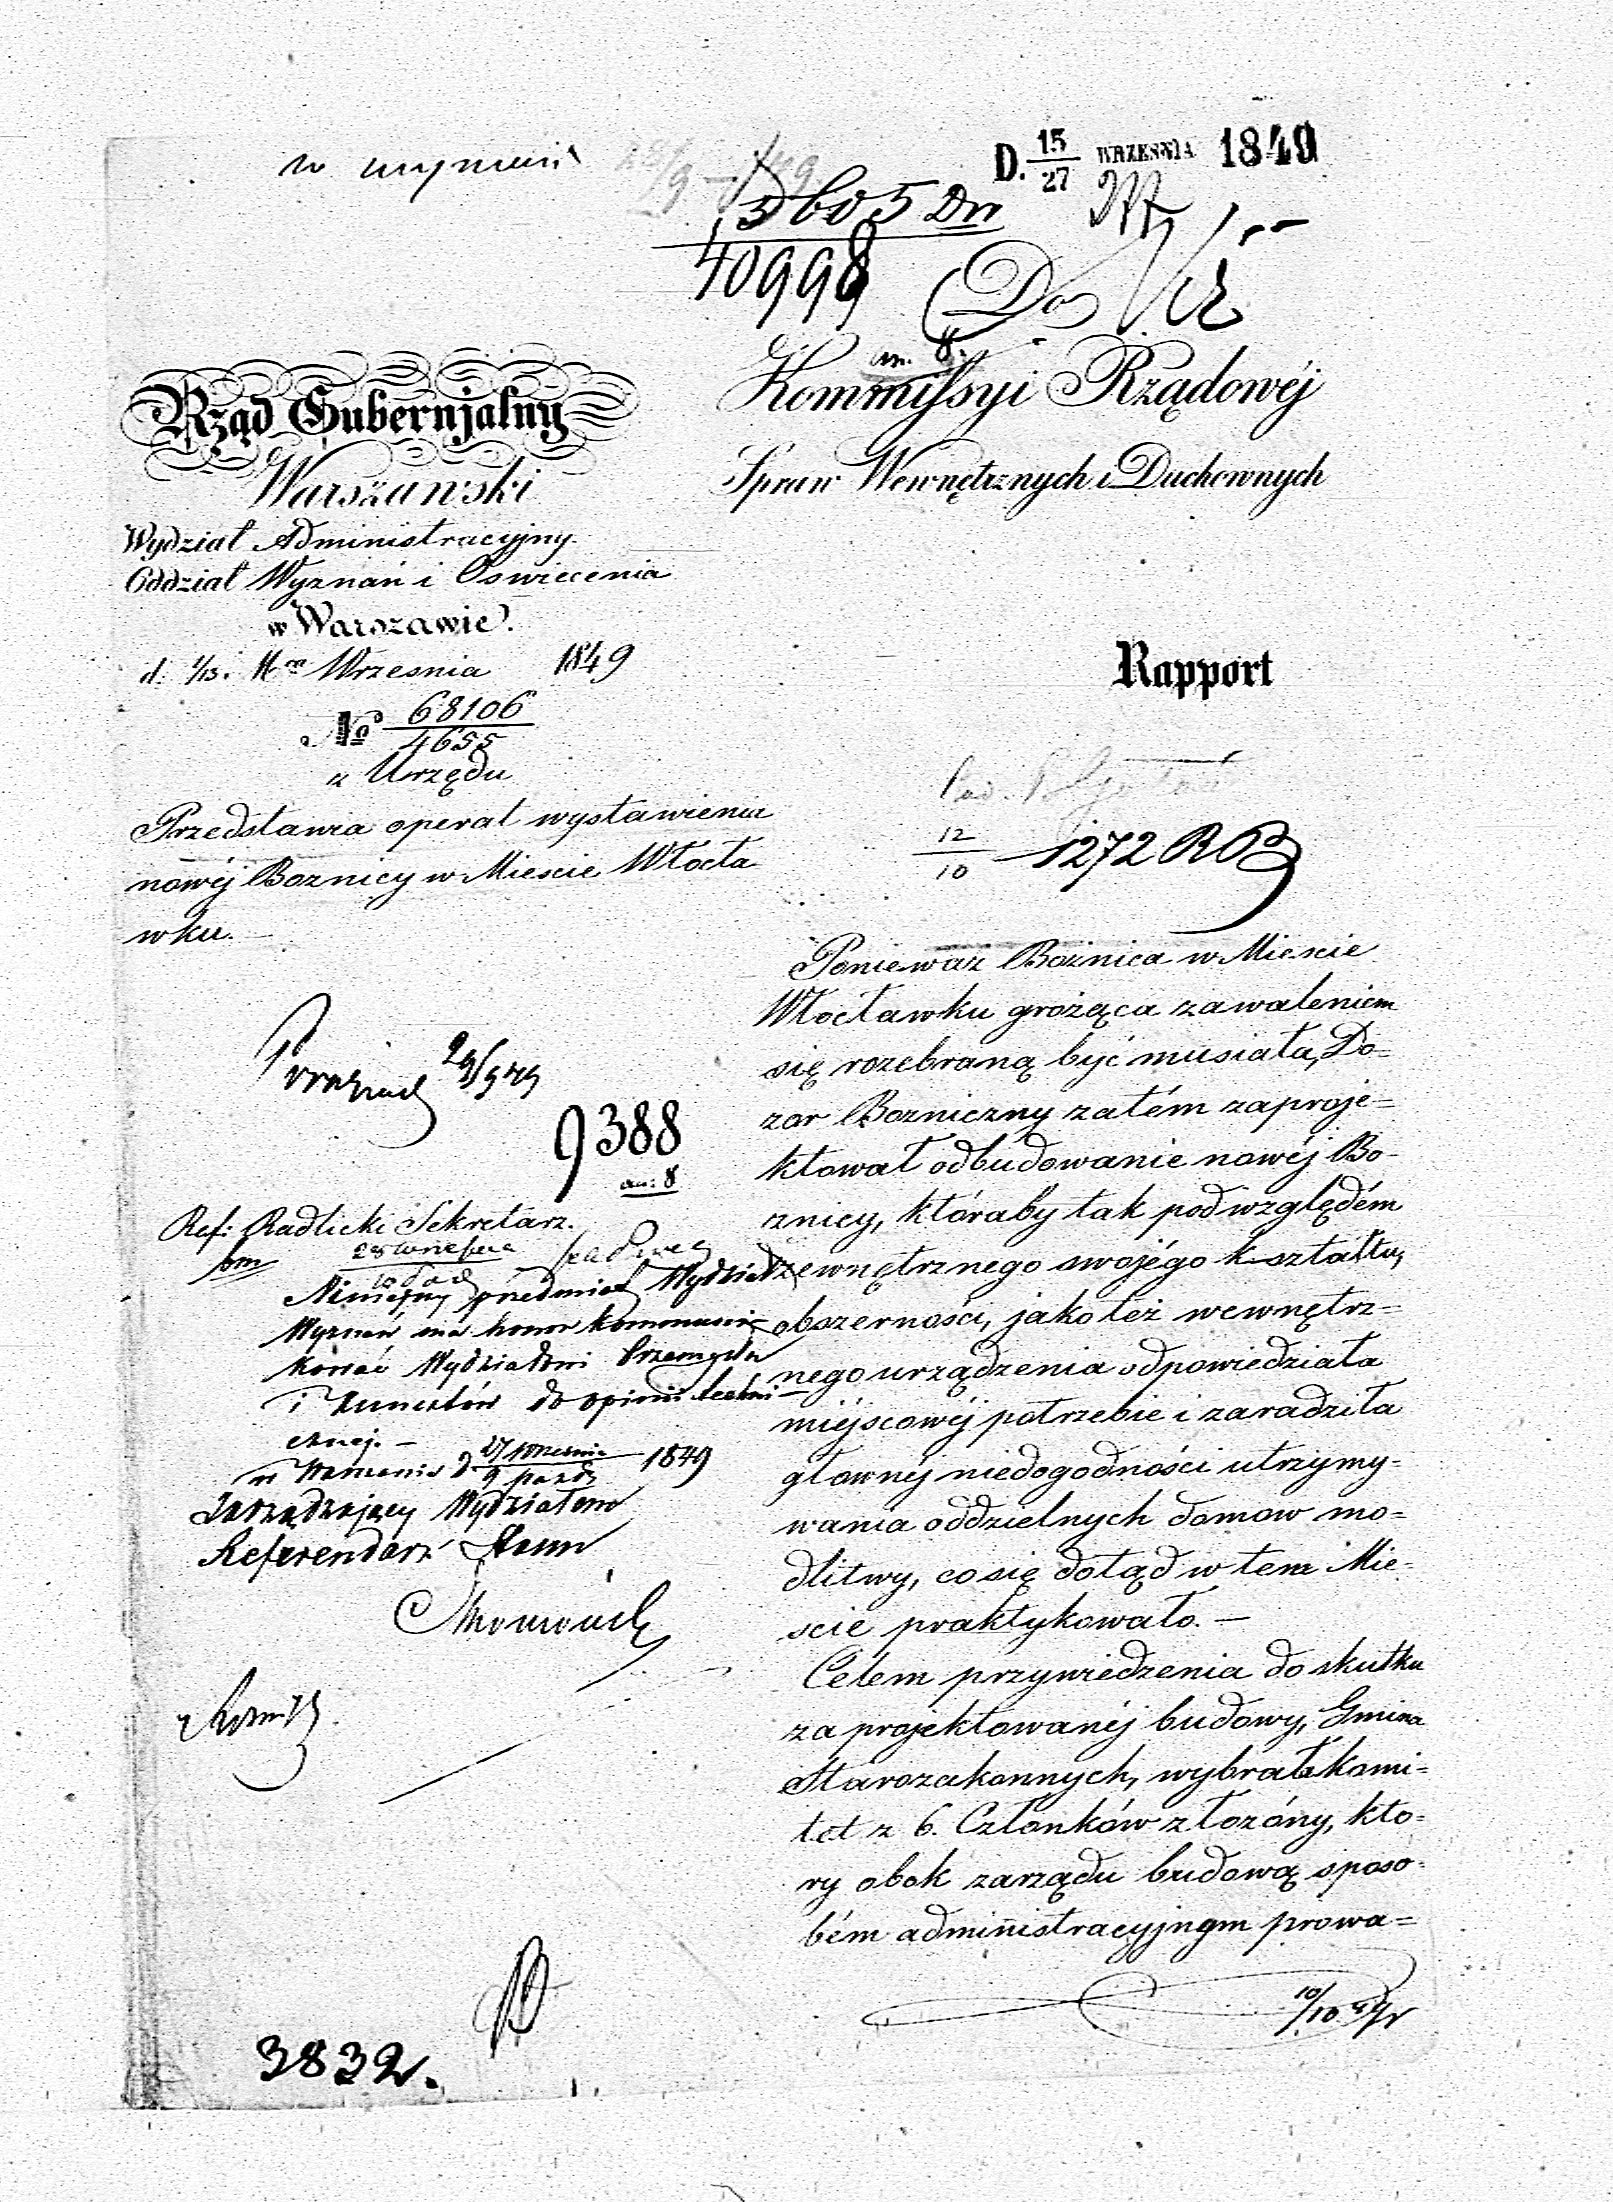 D. 15/27 WRZESNIA 1849
13605 Dn
40998
an. 8.
Do
Kommissyi Rządowéj
Spraw Wewnętrznych i Duchownych
Rząd Gubernjalny
Warszawski
Wydział Administracyjny.
Oddział Wyznań i Oswiecenia
w Warszawie.
d. 1/13. Mca Wrzesnia 1849
No 68106/4655
z Urzędu
Przedstawia operat wystawienia
nowéj Boznicy w Miescie Włocła
wku.
Rapport
12/10 1272
Poniewaz Bóżnica w Miescie
Włocławku grożąca zawaleniem
się rozebraną być musiała, Do=
zor Bozniczny zatém zaproje=
ktował odbudowanie nowéj Bo-
znicy, któraby tak pod względém
zewnętrznego swojégo kształtu,
obszerności, jako też wewnętrz=
nego urządzenia odpowiedziała
miéjscowéj potrzebie i zaradziła
głownéj niedogodności utrzymy=
wania oddzielnych domow mo=
dlitwy, co się dotąd w tem Mie=
scie praktykowało. —
Celem przywiedzenia do skutku
zaprojektowanéj budowy, Gmina
Starozakonnych, wybrała komi=
tet z 6. Członków złozóny, kto=
ry obok zarządu budową sposo=
bém administracyjnym prowa=
9388
an: 8
Ref: Radlicki Sekretarz.
Niniejszy przedmiot Wydział
Wyznań ma honor kommuni=
kować Wydziałowi Przemysłu
i Kunsztów do opinii techni—
cznej. —
w Warszawie d. 27 Wrzesnia/9 Pazdz 1849
Zarządzający Wydziałem
Referendarz Stanu
3832.